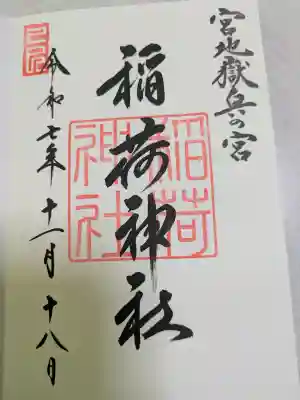 宮地嶽奥の宮
稲荷神社
稲荷
神社
令和七年十一月十八日